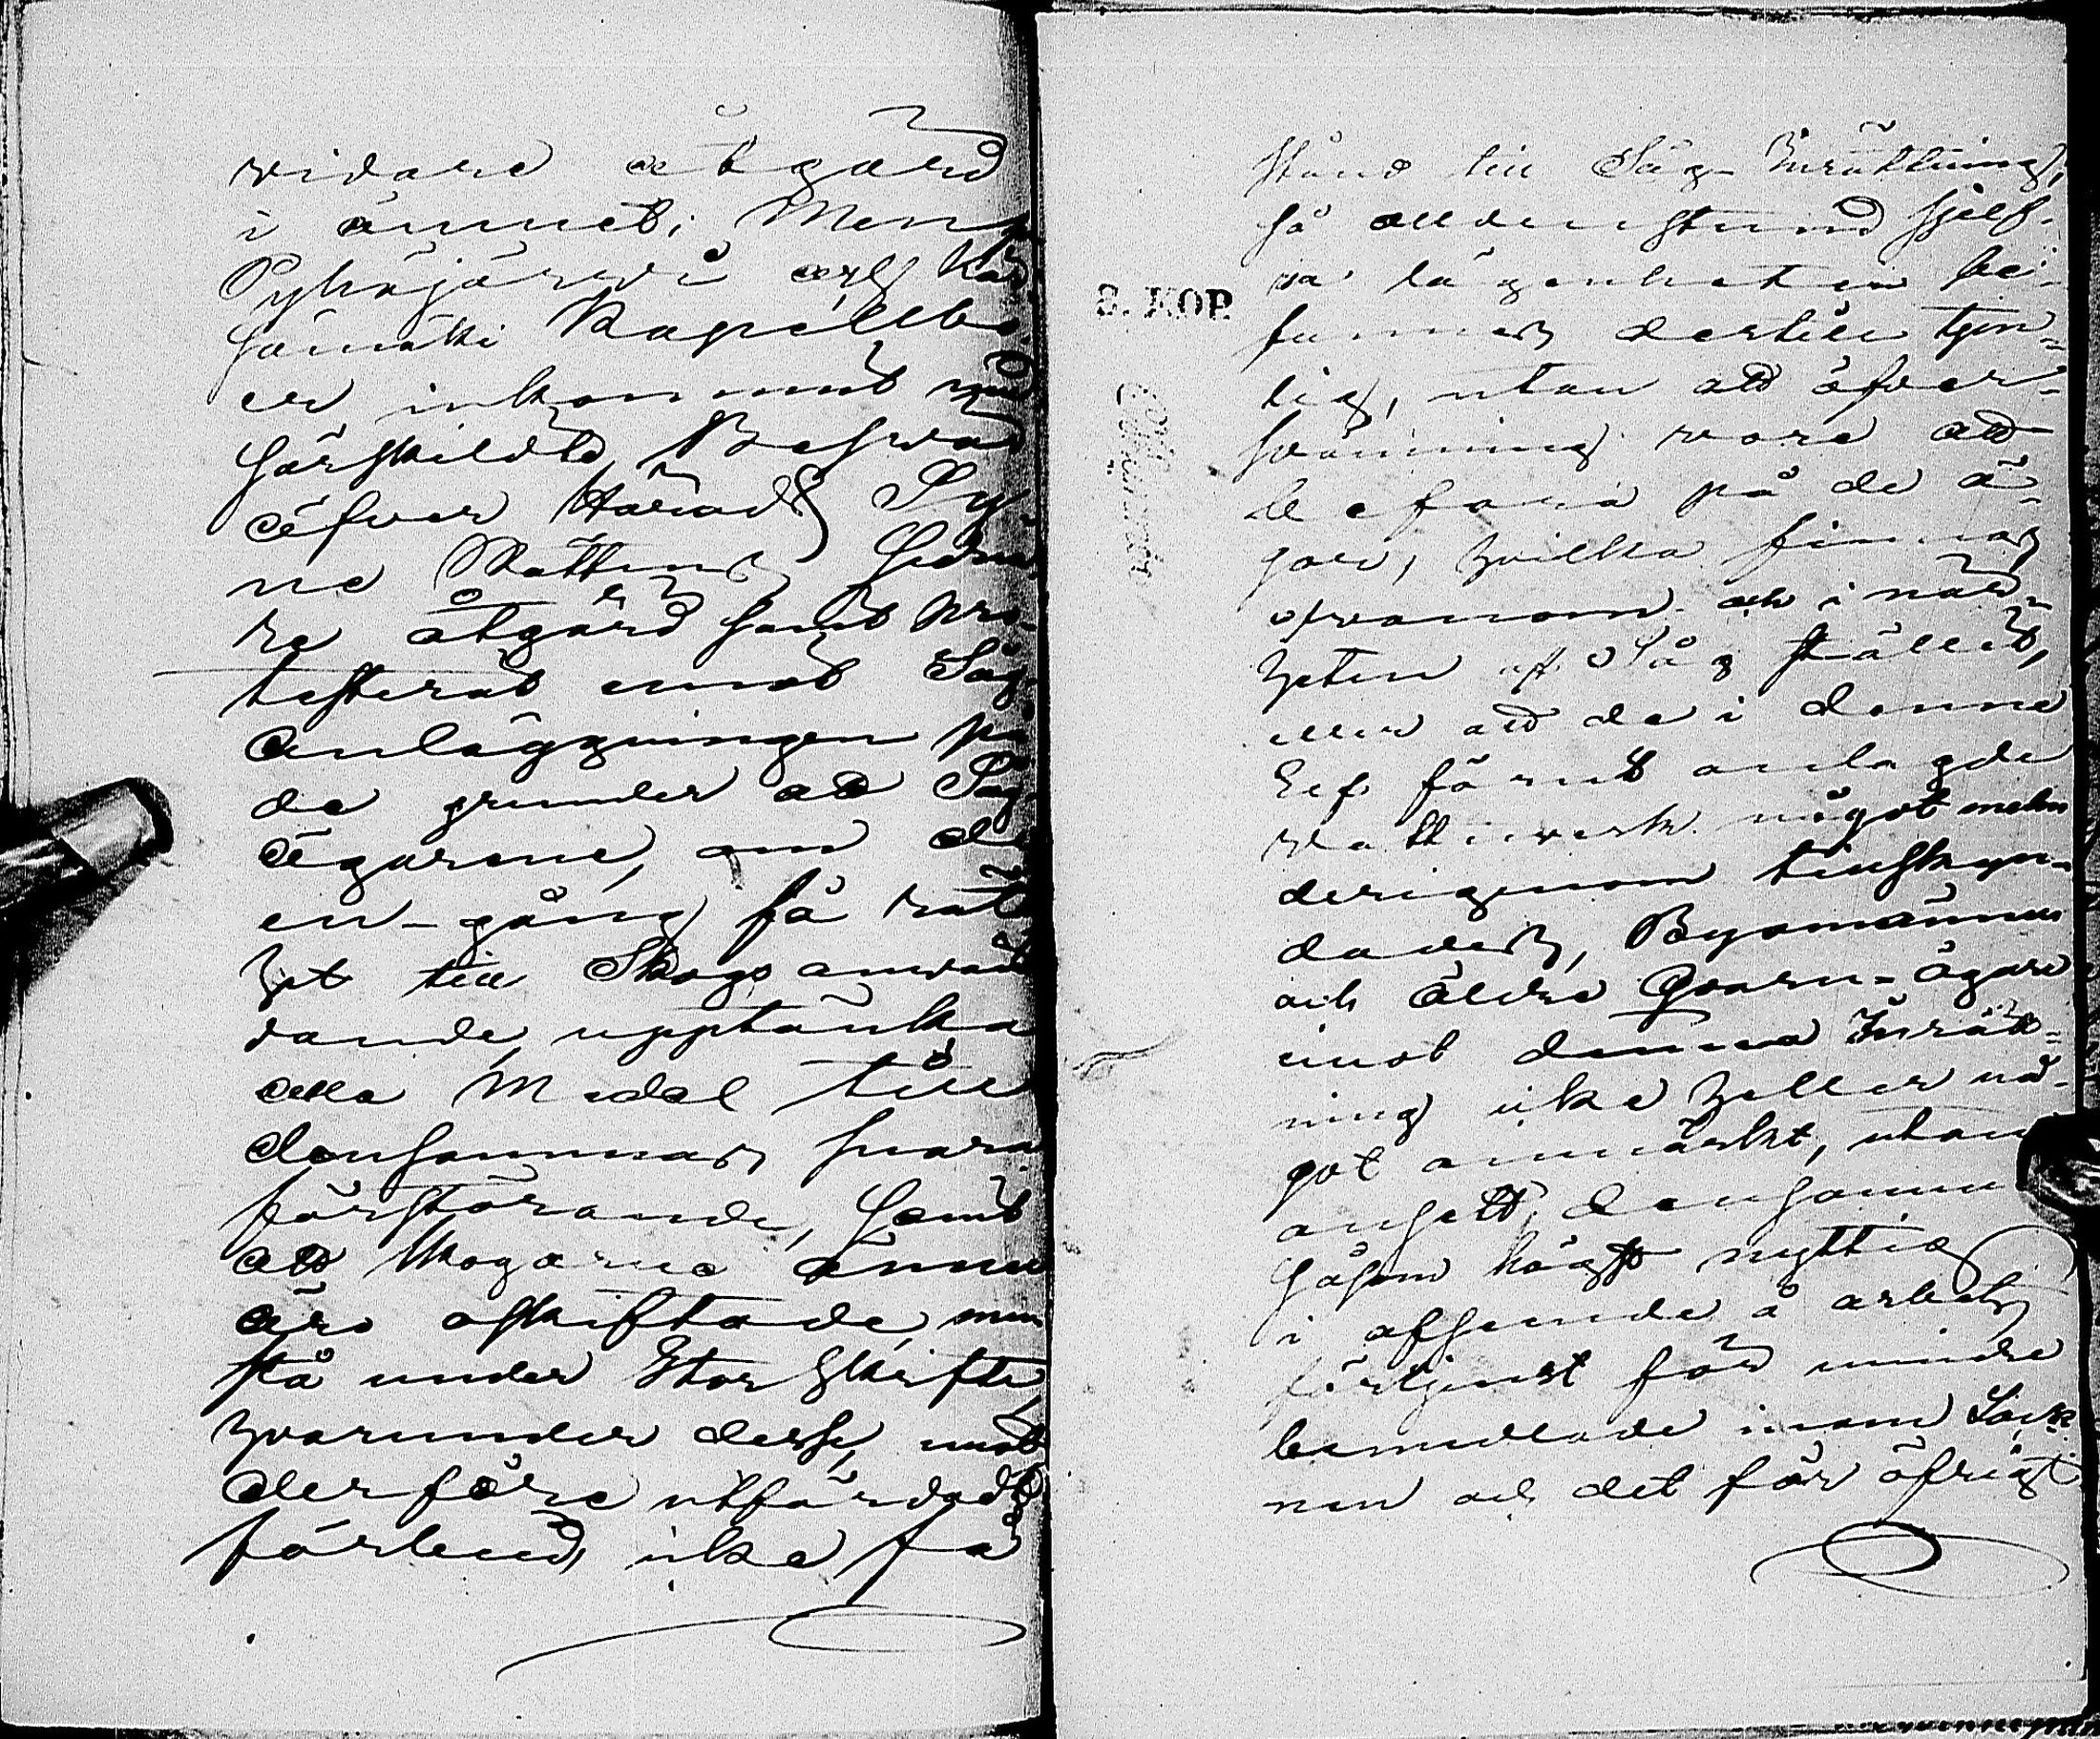 vidare åtgärd
i ämnet; Men
Pyhäjärvi och Kär
sämäki Kapellbo
er inkommit med
särskildte Besvär
öfver Härads Sy
ne Rättens sedna
re åtgärd samt pro
testerat emot Såg
anläggningen på
de grunder att Såg
ägarene, om de
en-gång få rät
het till Skogs anvä
dande, upptänka
alla Medel till
densammas snara
förstörande, samt
att skogarne ännu
äro oskiftade, men
stå under Storskifte,
hvarunder desse, emot
derföre utfärdadt
förbud, icke få
stånd till Såg-Inrättning,
så alldenstund sjelf-
va lägenheten be-
funnits dertill tjen-
lig, utan att öfver-
svämning vore att
befara på de ä-
gor, hvilka finnas
ofvanom och i när-
heten af Såg stället,
eller att de i denne
Elf förut anlagde
vattuverk något men
derigenom tillskyn-
dades, Byamännen
och äldre Qvarn-ägare
emot denna Inrätt-
ning icke heller nå-
got anmärkt, utan
ansett densamma
såsom högst nyttig
i afseende å arbets
förtjenst för mindre
bemedlade inom Sock
nen och det för öfrigt
8. KOP.